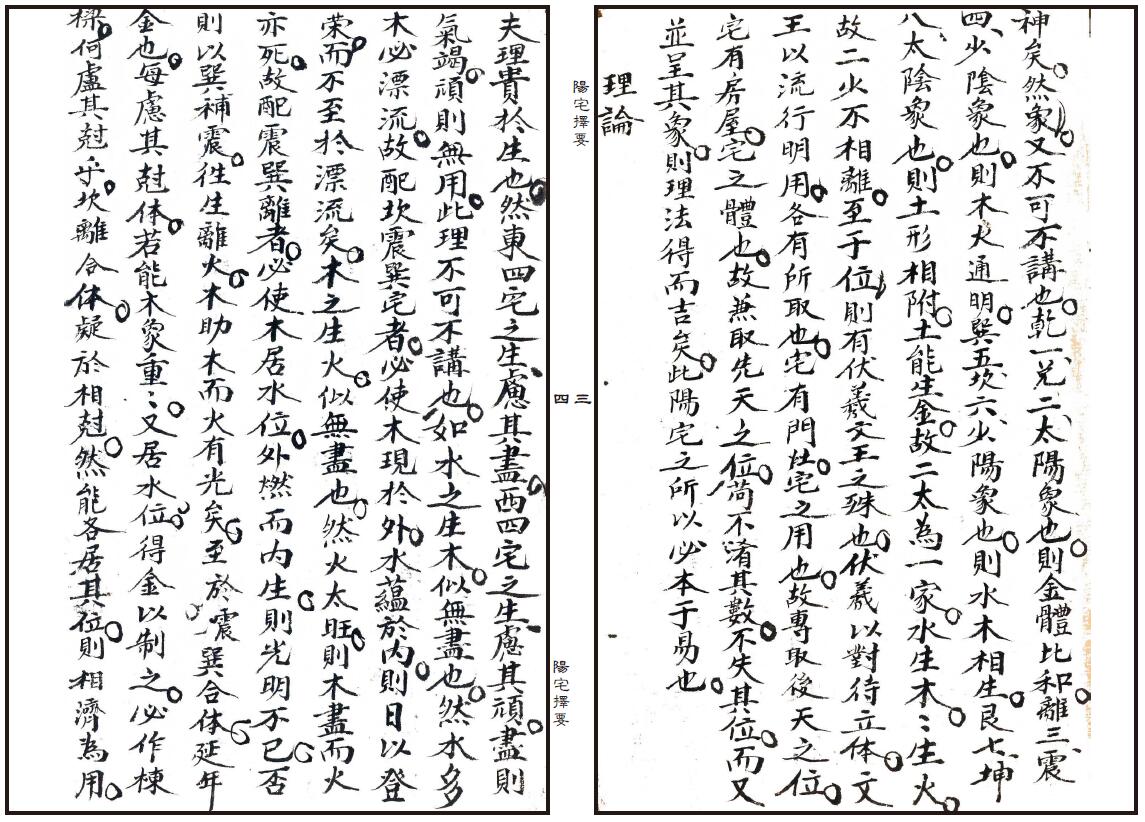 神矣然象又不可不講也乾一兌二太陽象也則金體比和離三震
四少陰象也則木火通明巽五坎六少陽象也則水木相生艮七坤
八太陰象也則土形相附土能生金故二太為一家水生木〻生火
故二火不相離至于位則有伏羲文王之殊也伏羲以對待立体文
王以流行明用各有所取也宅有門灶宅之用也故專取後天之位
宅有房屋宅之體也故兼取先天之位茍不淆其數不失其位而又
並呈其象則理法得而吉矣此陽宅之所以必本于易也
理論
陽宅擇要
三
四
陽宅擇要
夫理貴於生也然東四宅之生慮其盡西四宅之生慮其頑盡則
氣竭頑則無用此理不可不講也如水之生木似無盡也然水多
木必漂流故配坎震巽宅者必使木現於外水蘊於內則日以登
荣而不至於漂流矣木之生火似無盡也然火太旺則木盡而火
亦死故配震巽離者必使木居水位外燃而内生則光明不已否
則以巽補震徃生離火木助木而火有光矣至於震巽合体延年
金也每慮其尅体若能木象重〻又居水位得金以制之必作棟
樑何慮其尅乎坎離合体疑於相尅然能各居其位則相濟為用